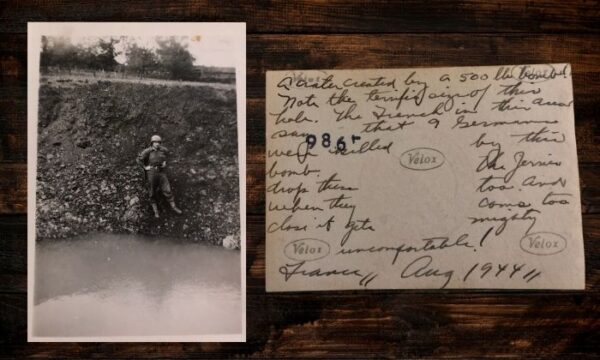 A crater created by a 500 lb. bomb!
Note the terrific size of this
hole. The French in this area
say that 9 Germans
were killed by this
bomb. The Jerries
drop these too. And
when they come too
close it gets mighty
uncomfortable!
France,, Aug 1944,,
9865
Velox
Velox
Velox
Velox